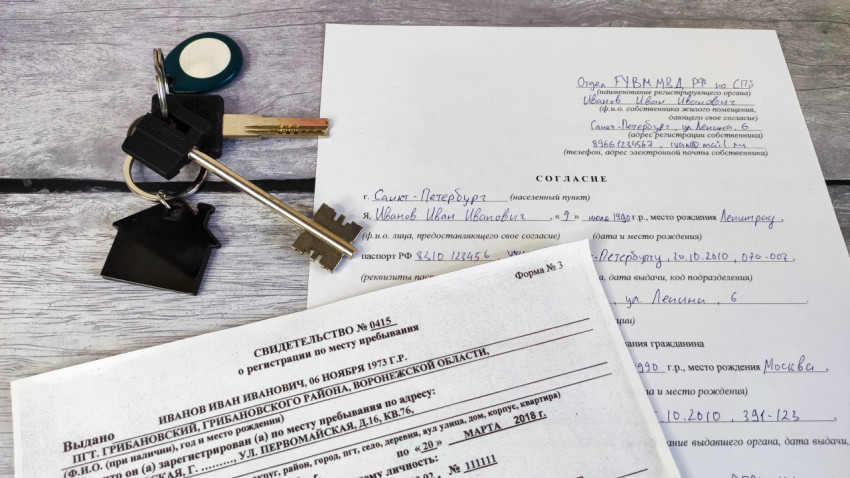 Отдел ГУВМ МВД РФ по СПб
(наименование регистрирующего органа)
Иванов Иван Иванович
(ф.и.о. собственника жилого помещения,
дающего свое согласие)
Санкт-Петербург, ул Ленина, 6
(адрес регистрации собственника)
89661234567, ivan@mail.ru
(телефон, адрес электронной почты собственника)
СОГЛАСИЕ
г. Санкт-Петербург (населенный пункт)
Я, Иванов Иван Иванович, «9» июля 1990 г.р., место рождения Ленинград,
(ф.и.о. лица, предоставляющего свое согласие) (дата и место рождения)
паспорт РФ 8310 123456, -Петербургу, 20.10.2010, 070-007,
(реквизиты , дата выдачи, код подразделения)
ул Ленина, 6
ции)
вания гражданина
990 г.р., место рождения Москва,
(дата и место рождения)
.10.2010, 391-123
вание выдавшего органа, дата выдачи,
Форма № 3
СВИДЕТЕЛЬСТВО № 0415
о регистрации по месту пребывания
Выдано ИВАНОВ ИВАН ИВАНОВИЧ, 06 НОЯБРЯ 1973 Г.Р.
ПГТ. ГРИБАНОВСКИЙ, ГРИБАНОВСКОГО РАЙОНА, ВОРОНЕЖСКОЙ ОБЛАСТИ,
(Ф.И.О. (при наличии), год и место рождения)
то он (а) зарегистрирован (а) по месту пребывания по адресу:
СКАЯ, Г. ........, УЛ. ПЕРВОМАЙСКАЯ, Д.16, КВ.76,
округ, район, город, пгт, село, деревня, аул улица, дом, корпус, квартира)
по «20» МАРТА 2018 г.
му личность:
.02, № 111111